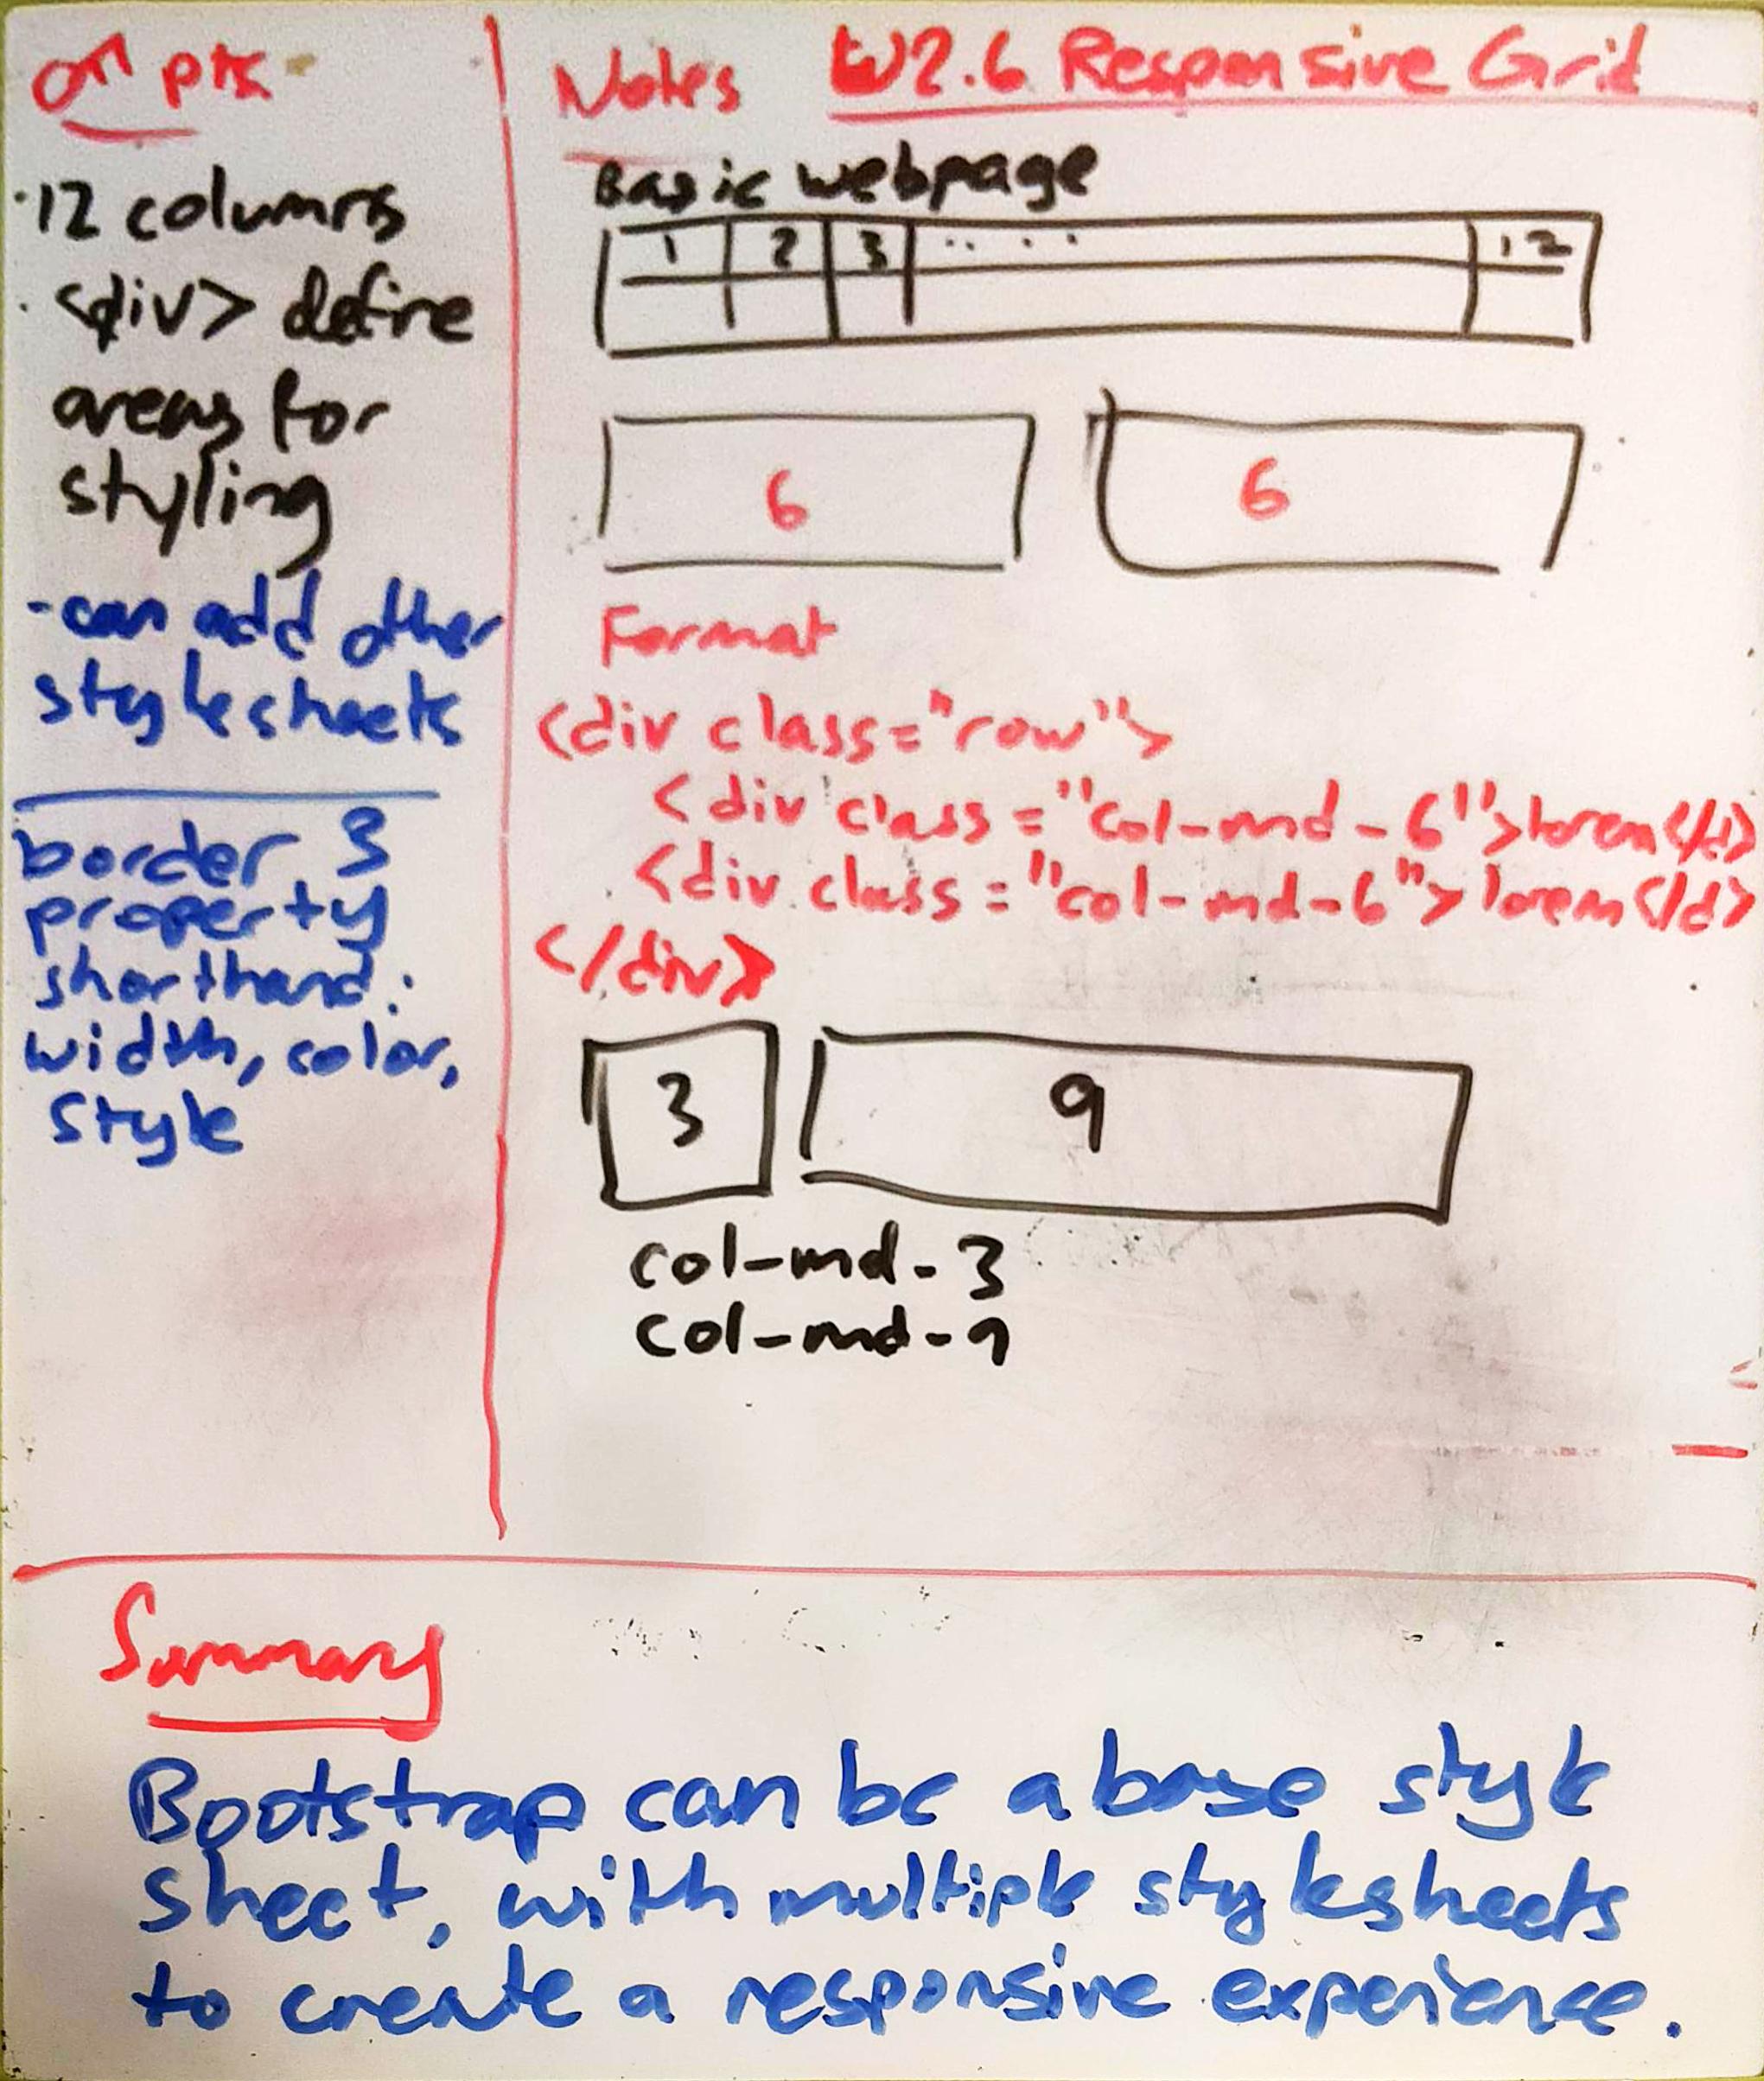 pts
· 12 columns
· <div> define
areas for
styling
- can add other
stylesheets
border 3
property
shorthand:
width, color,
style
Notes W2.6 Responsive Grid
Basic webpage
1 2 3 .. . . 12
6 6
Format
<div class="row">
<div class="col-md-6">lorem</d>
<div class="col-md-6">lorem</d>
</div>
3 9
col-md-3
col-md-9
Summary
Bootstrap can be a base style
sheet, with multiple stylesheets
to create a responsive experience.